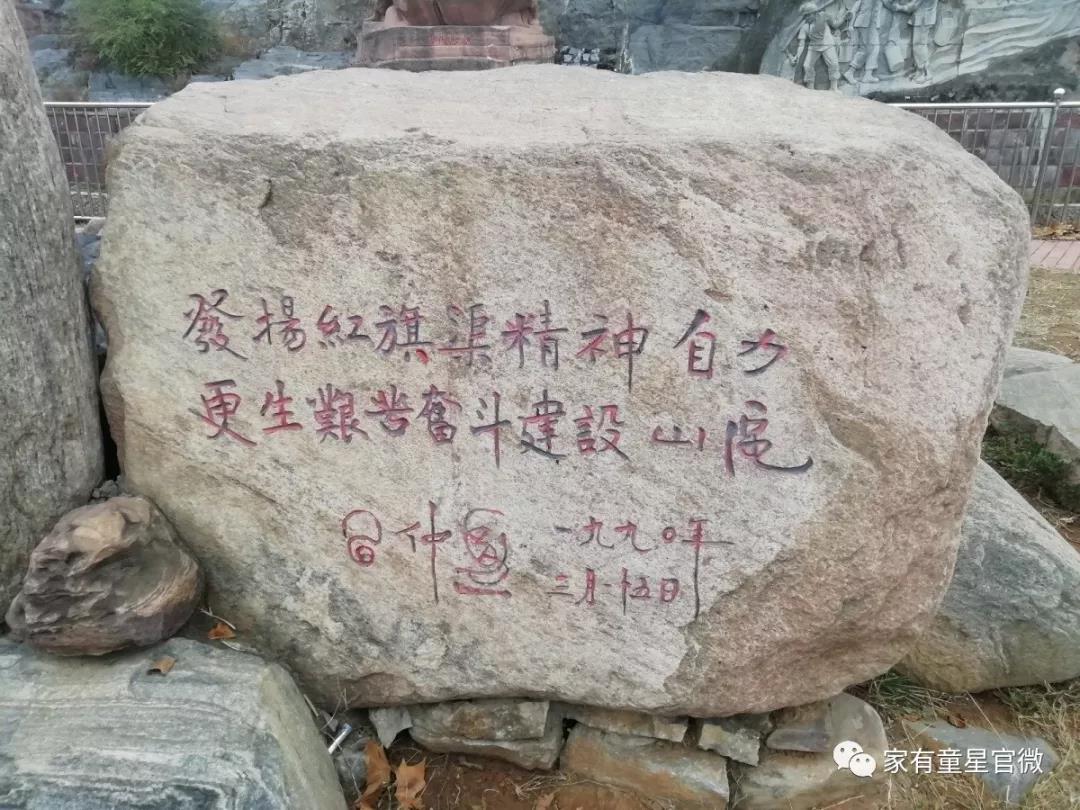 發揚紅旗渠精神自力
更生艱苦奮斗建設山
仲 一九九〇年
三月十五日
家有童星官微